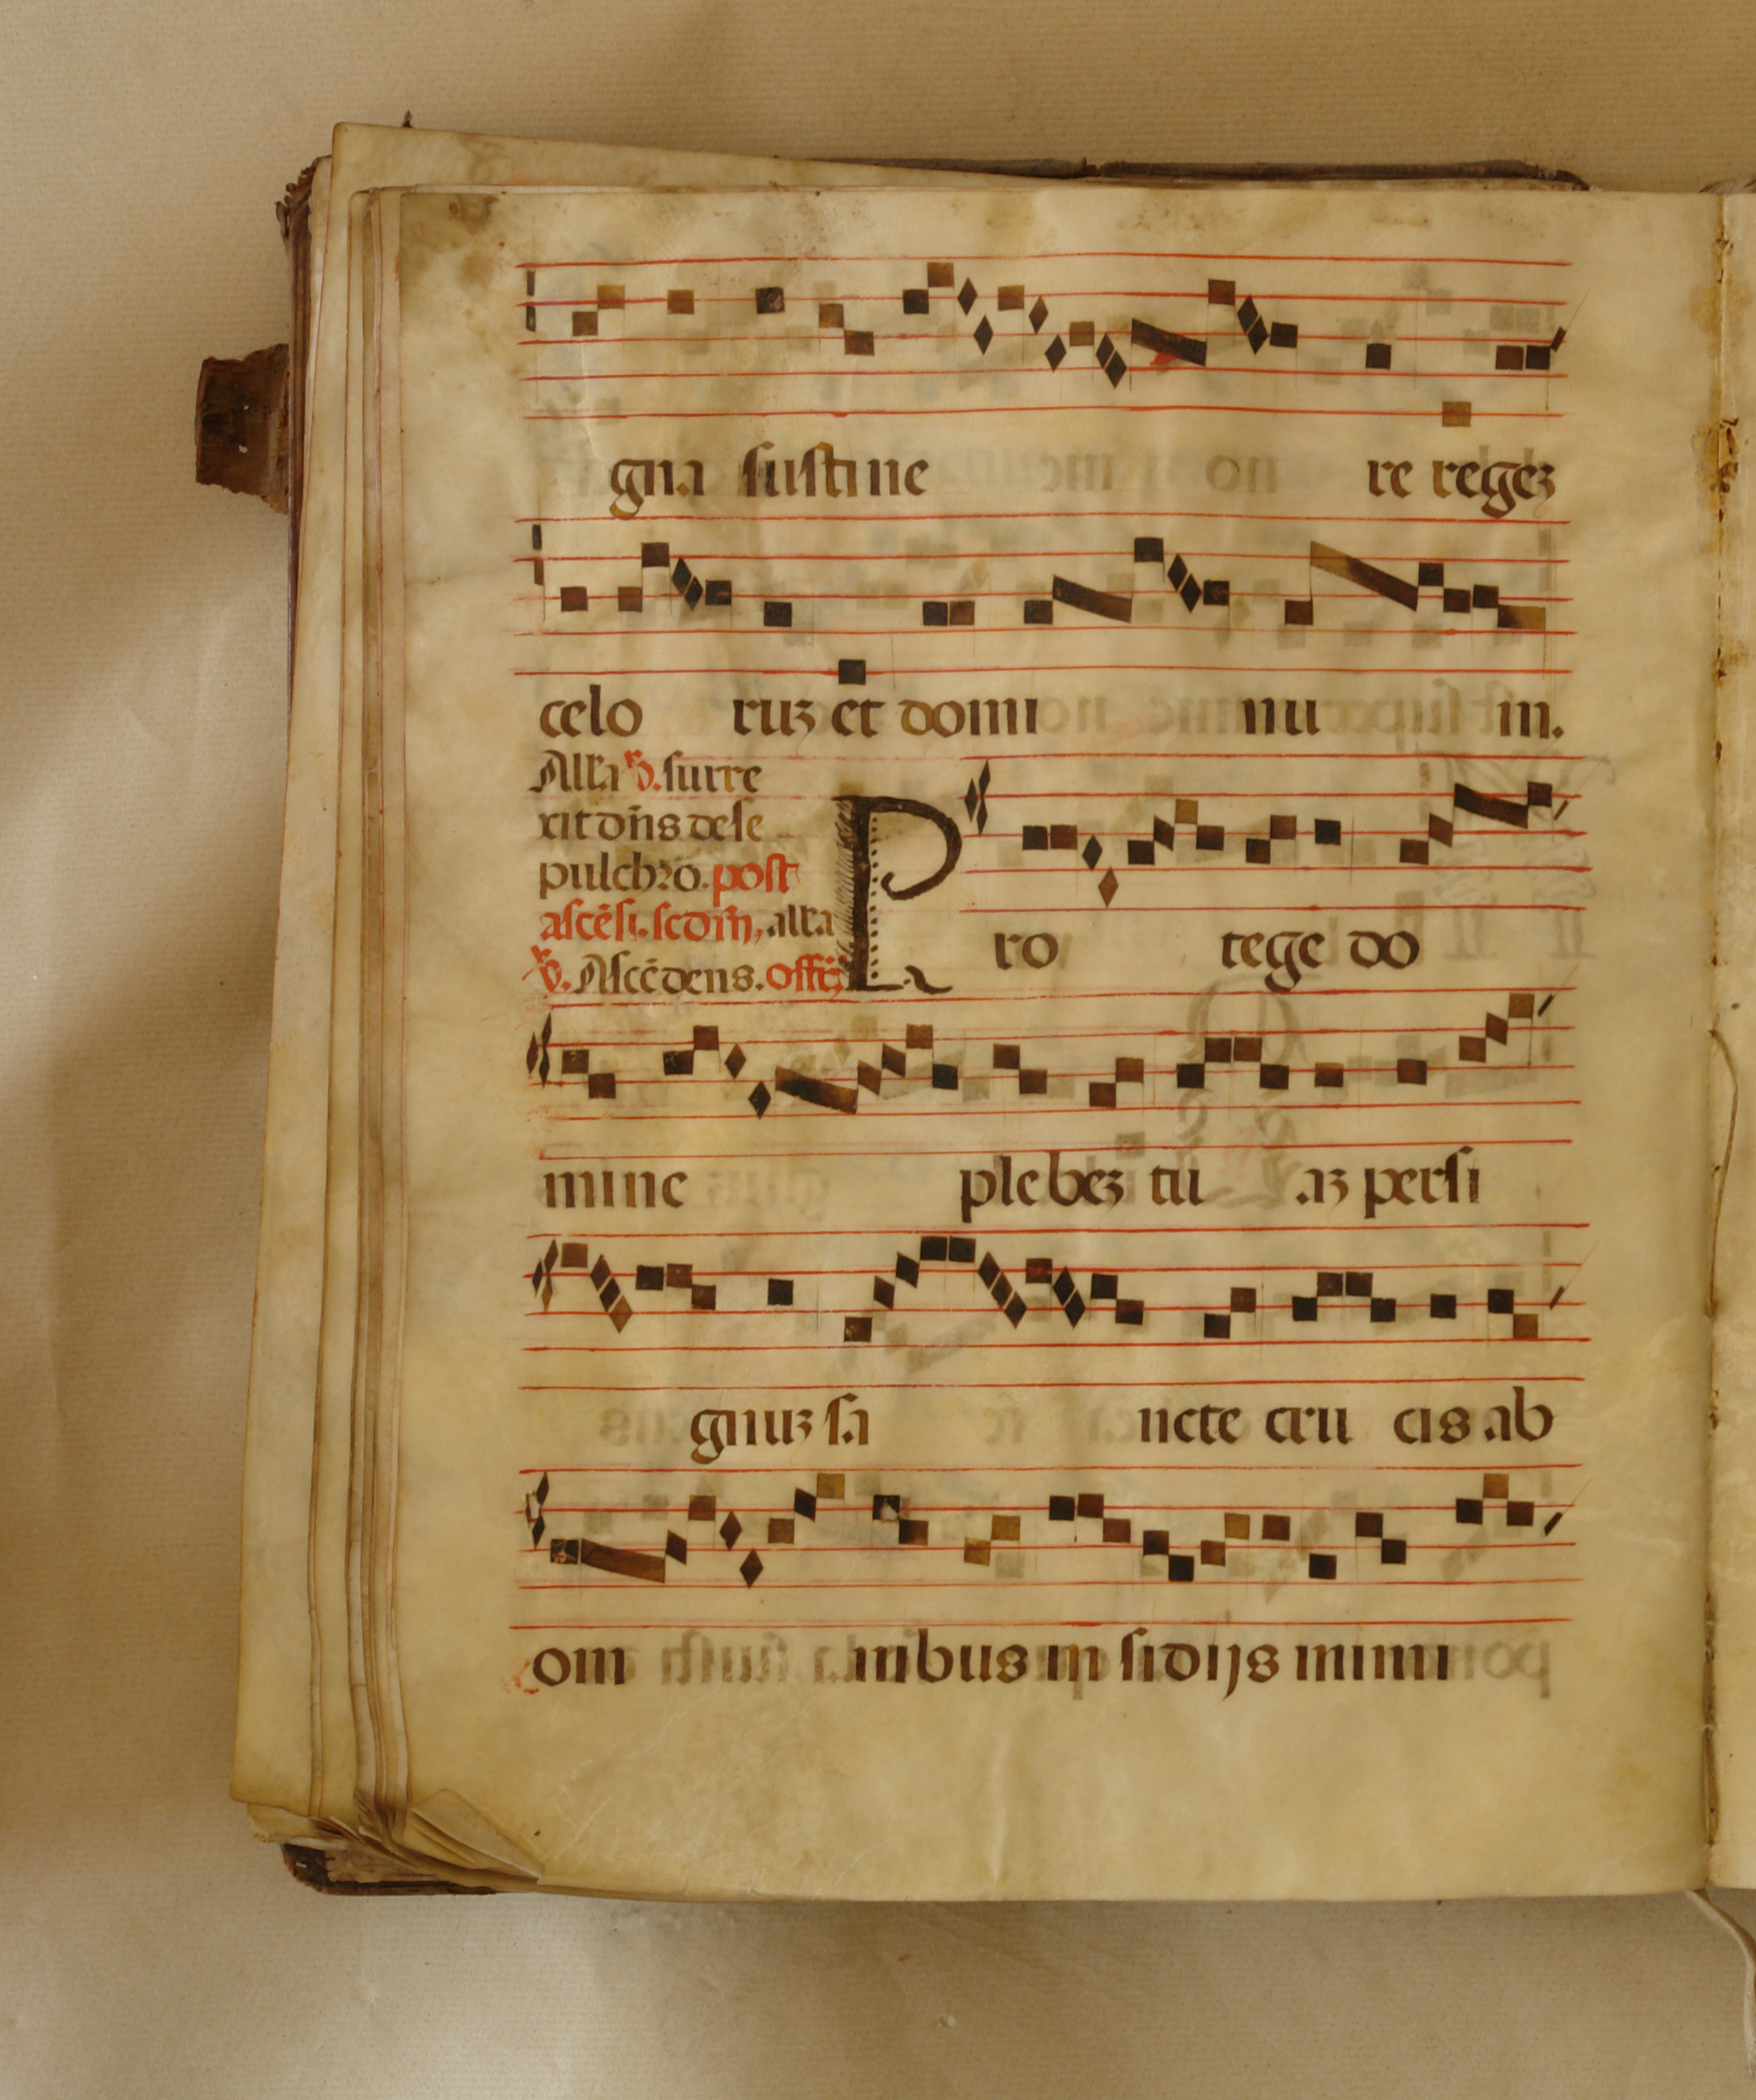 gna sustine re regeʒ
celo ruʒ et domi nu m.
All'a ℣. surre
xit dn̄s de se
pulchro. post
ascēsi. scdm̄, all'a
℣. Ascēdens. offr̄;
P ro tege do
mine plebeʒ tu aʒ per si
gnuʒ sa ncte cru cis ab
om nibus in sidijs inimi